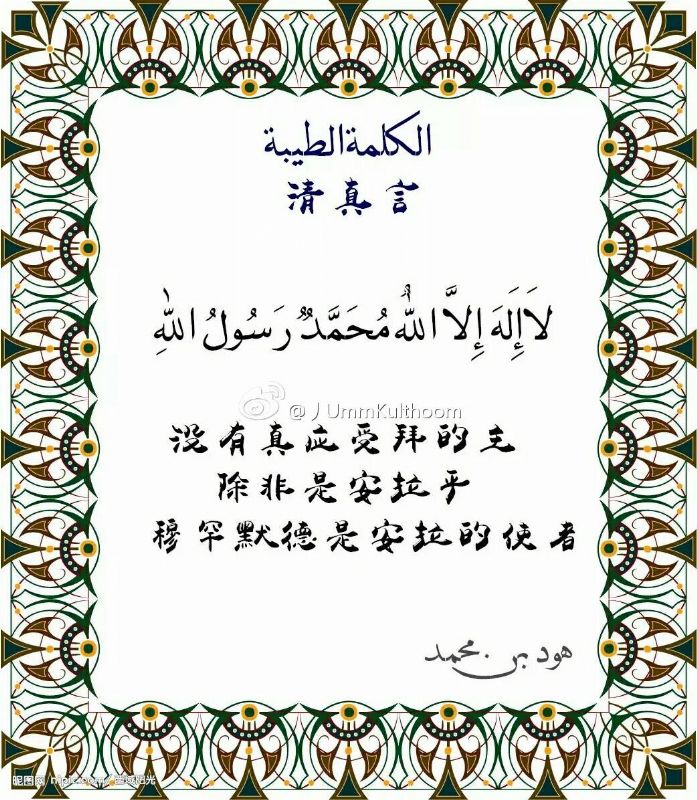 الكلمة الطيبة
清真言
لاَ إِلَهَ إِلاَّ اللّٰهُ مُحَمَّدٌ رَسُولُ اللّٰهِ
@丿UmmKulthoom
没有真应受拜的主
除非是安拉乎
穆罕默德是安拉的使者
هود بن محمد
昵图网 nipic.com/